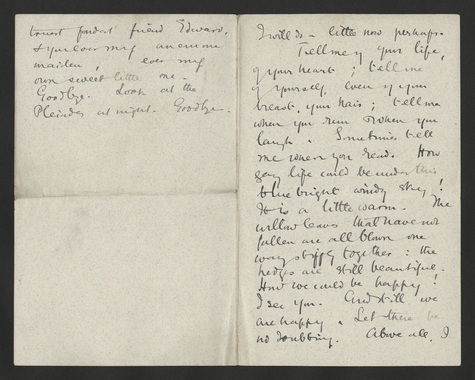 truest fondest friend Edward.
& you ever my
maiden, ever my
own sweet little one.
Goodbye. Look at the
Pleiades at night. Goodbye.
I will do – little now perhaps.
Tell me of your life,
of your heart; tell me
of yourself, even of your
breast, your hair; tell me
when you run & when you
laugh. Sometimes tell
me where you read. How
gay life could be under this
blue bright windy sky!
It is a little warm. The
willow leaves that have not
fallen are all blown one
way stiffly together: the
hedges are still beautiful.
How we could be happy!
I see you. And still we
are happy. Let there be
no doubting. Above all, I